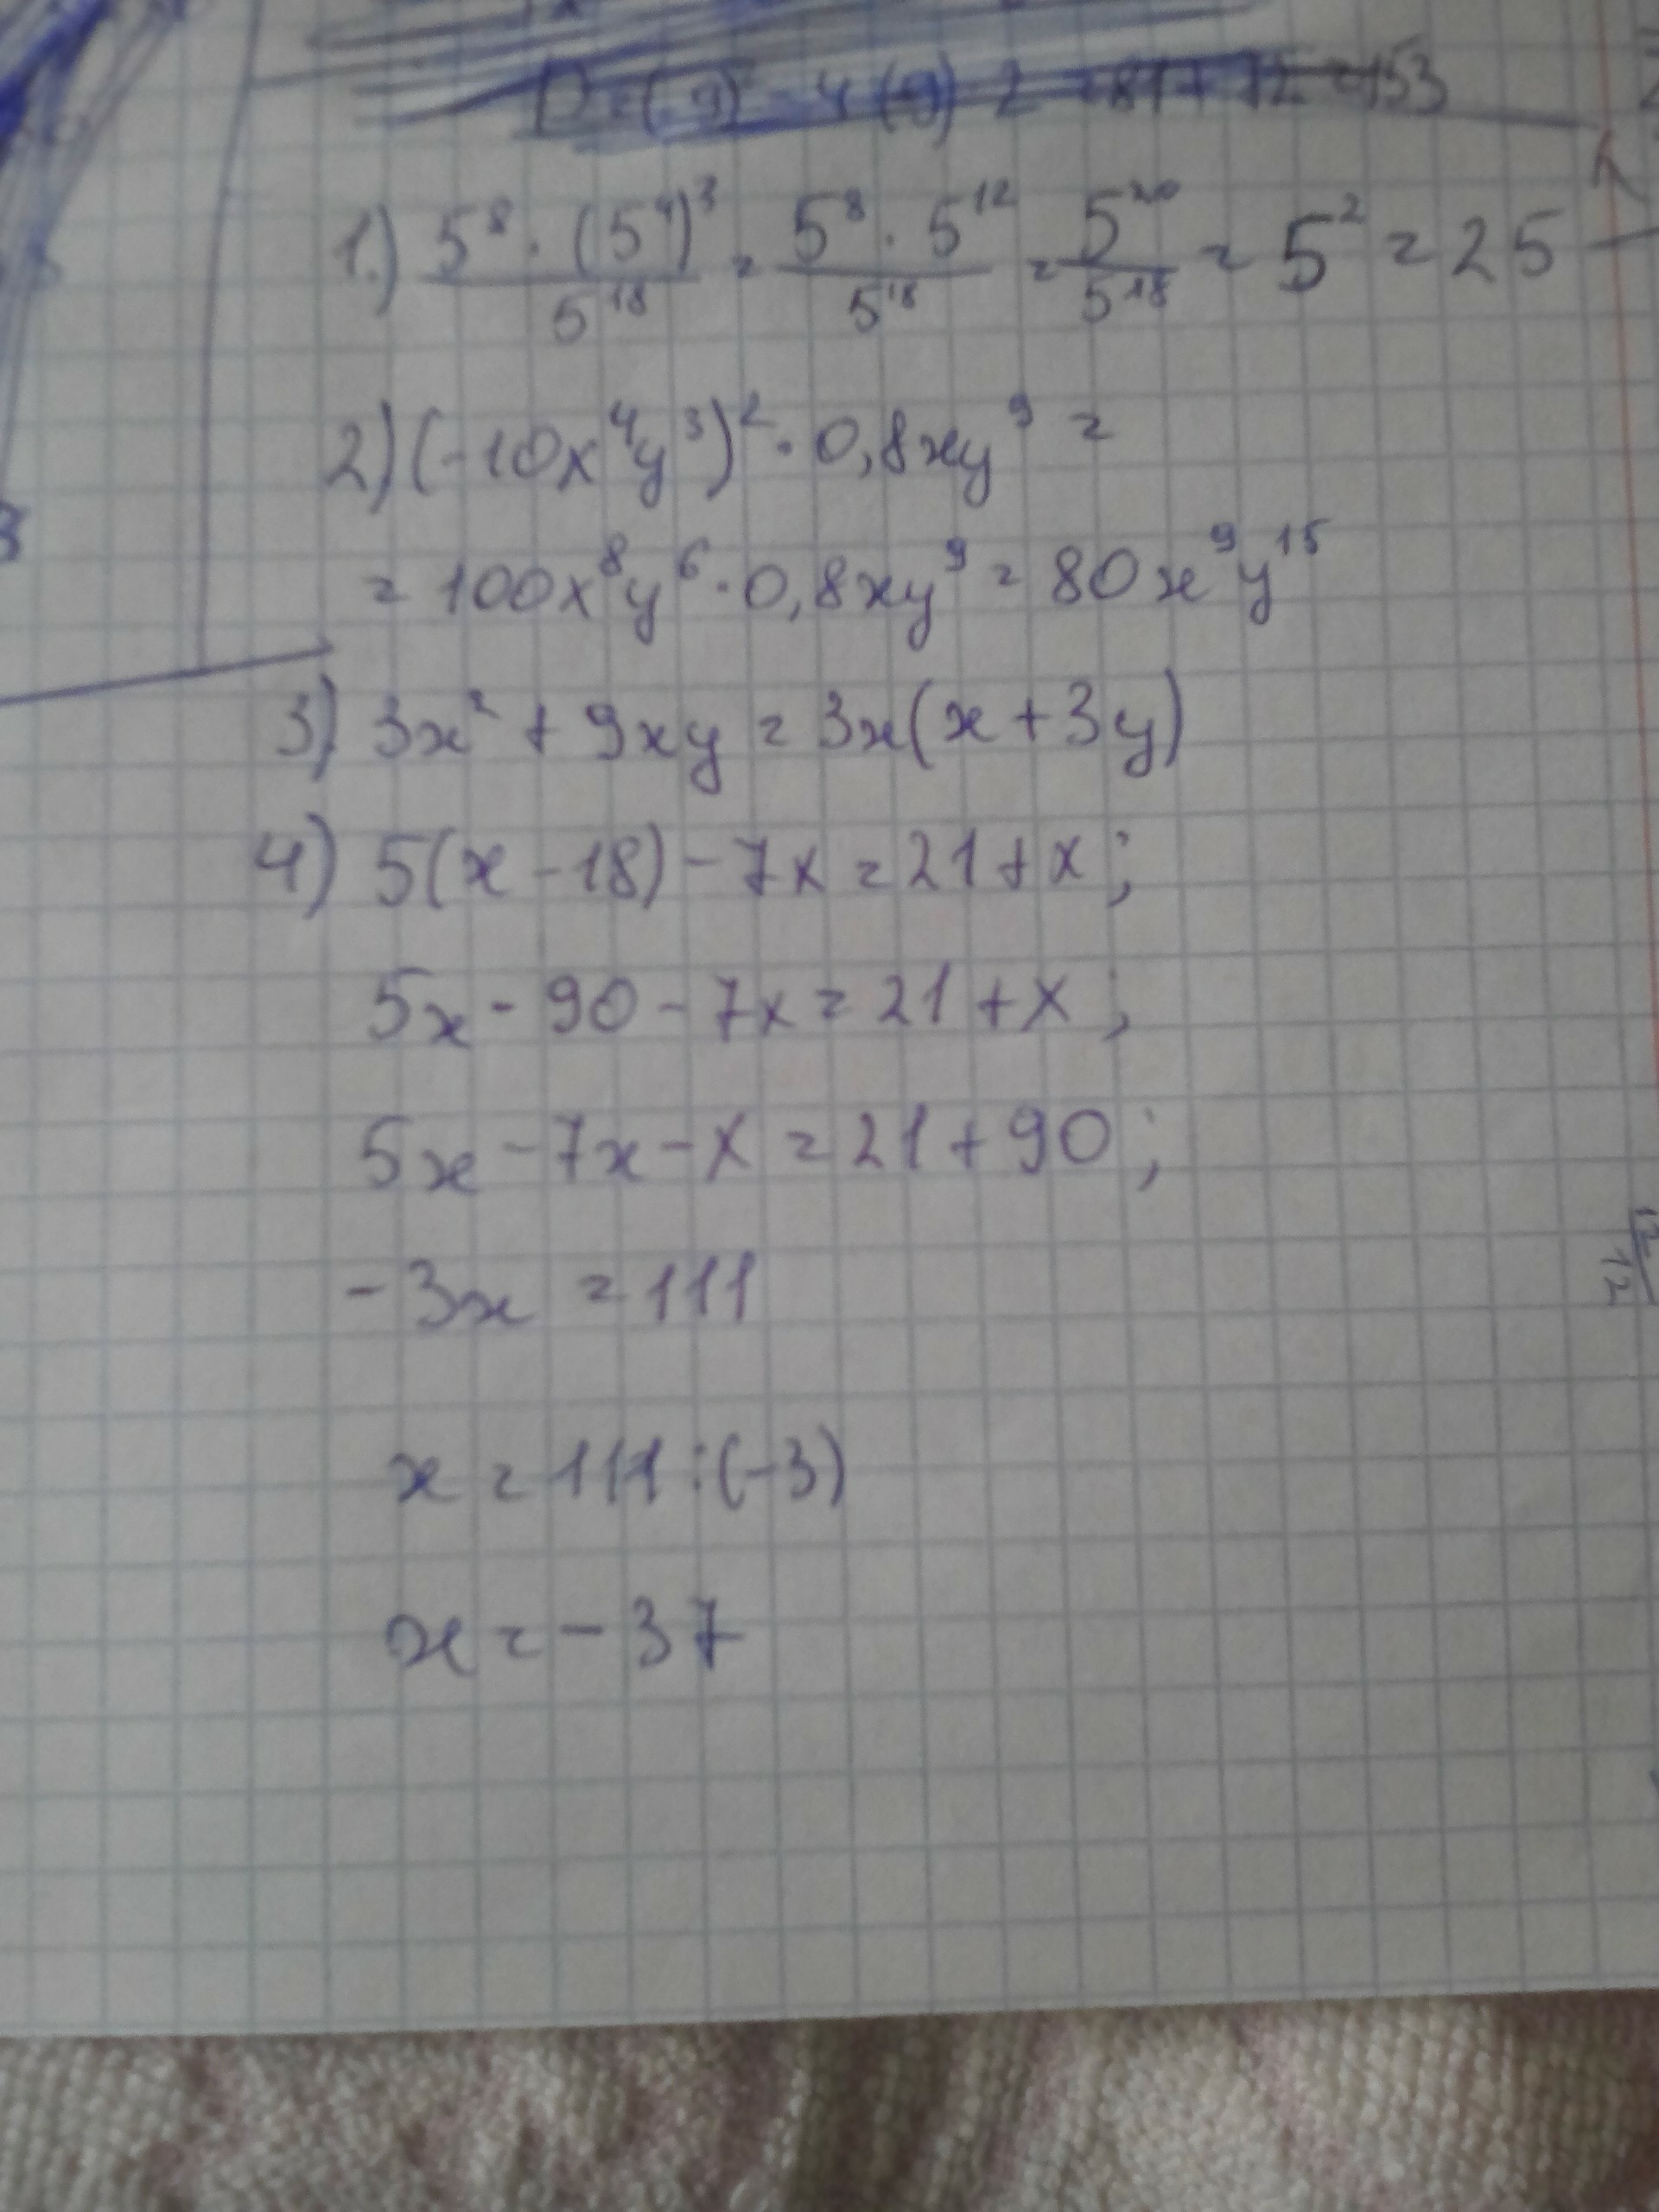 D = (-9) - 4 (-9) · 2 = 81 + 72 = 153
1.) 5⁸ · (5⁴)³ / 5¹⁸ = 5⁸ · 5¹² / 5¹⁸ = 5²⁰ / 5¹⁸ = 5² = 25
2) (-10x⁴y³)² · 0,8xy⁹ =
= 100x⁸y⁶ · 0,8xy⁹ = 80x⁹y¹⁵
3) 3x² + 9xy = 3x(x + 3y)
4) 5(x - 18) - 7x = 21 + x;
5x - 90 - 7x = 21 + x;
5x - 7x - x = 21 + 90;
-3x = 111
x = 111 : (-3)
x = -37